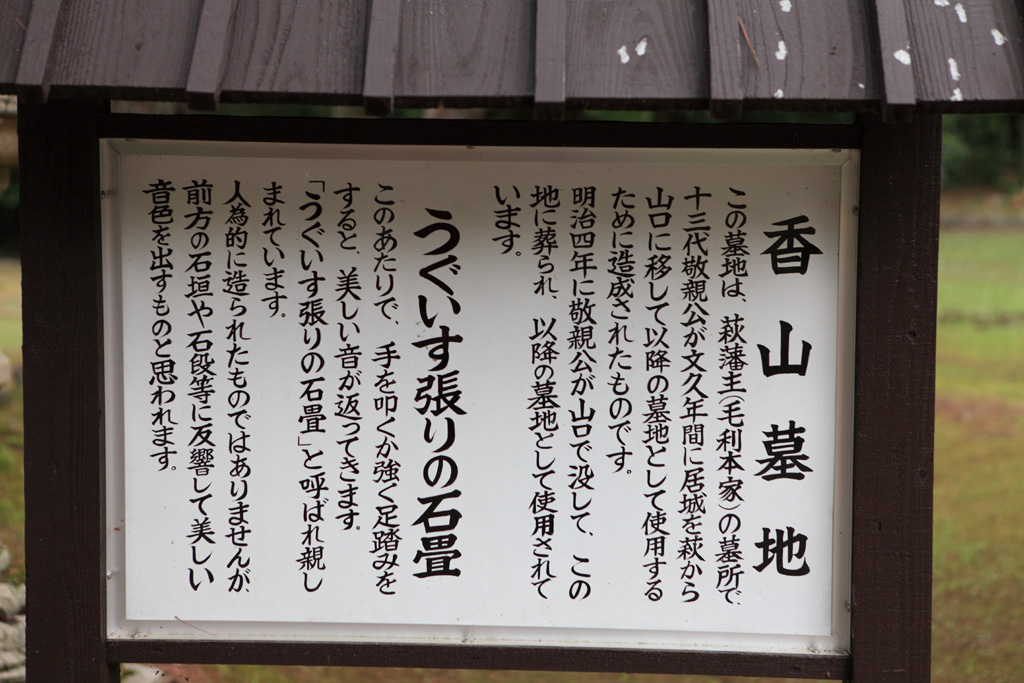 香山墓地
この墓地は、萩藩主(毛利本家)の墓所で、
十三代敬親公が文久年間に居城を萩から
山口に移して以降の墓地として使用する
ために造成されたものです。
明治四年に敬親公が山口で没して、この
地に葬られ、以降の墓地として使用されて
います。
うぐいす張りの石畳
このあたりで、手を叩くか強く足踏みを
すると、美しい音が返ってきます。
「うぐいす張りの石畳」と呼ばれ親し
まれています。
人為的に造られたものではありませんが、
前方の石垣や石段等に反響して美しい
音色を出すものと思われます。